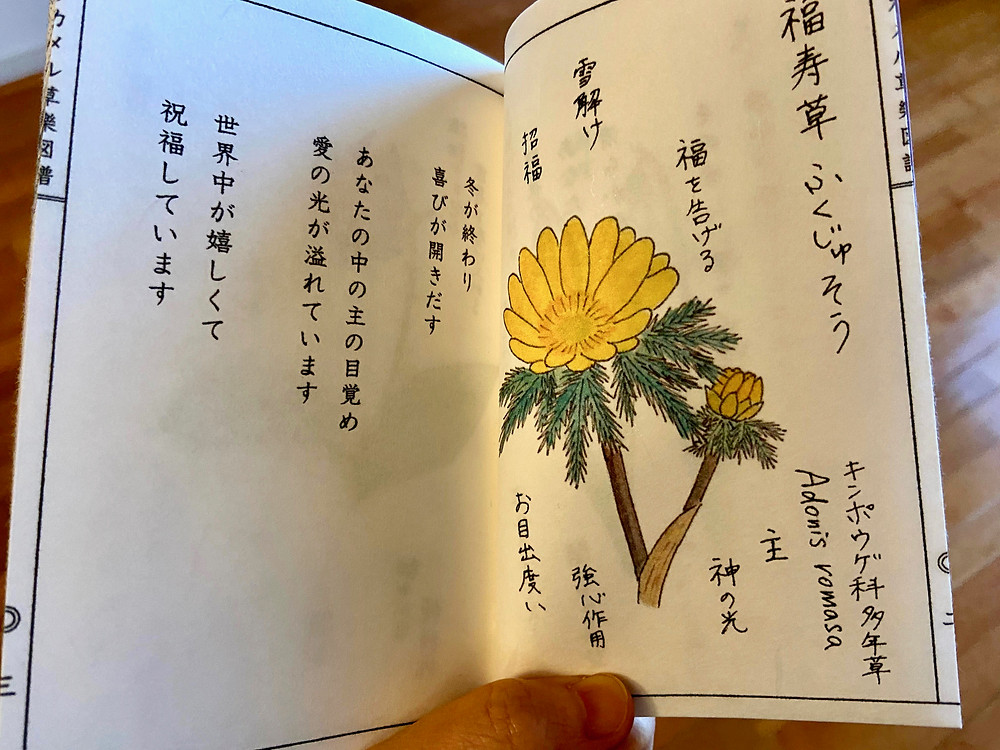 福寿草 ふくじゅそう
キンポウゲ科多年草
Adonis romasa
福を告げる
主
神の光
雪解け
強心作用
招福
お目出度い
二
冬が終わり
喜びが開きだす
あなたの中の主の目覚め
愛の光が溢れています
世界中が嬉しくて
祝福しています
カメル草樂図譜
三